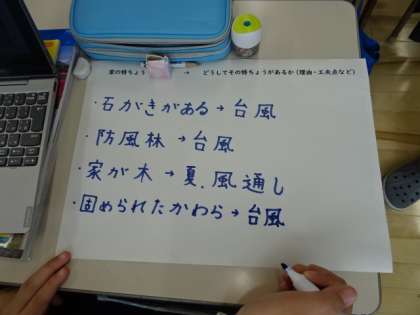 家の特ちょう → どうしてその特ちょうがあるか(理由・工夫点など)
・石がきがある→台風
・防風林→台風
・家が木→夏、風通し
・固められたかわら→台風